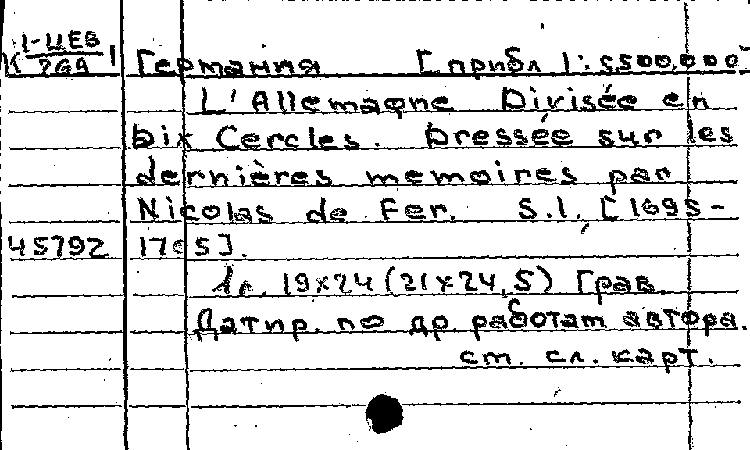 К 1-ЦЕВ/769 1 Германия [прибл 1:5500,000
L'Allemagne Divisée en
Dix Cercles. Dressée sur les
dernières memoires par
Nicolas de Fer. S.l, [1695-
45792 1705].
1л. 19x24 (21x24,5) Грав.
Датир. по др. работам автора.
ст. сл. карт.